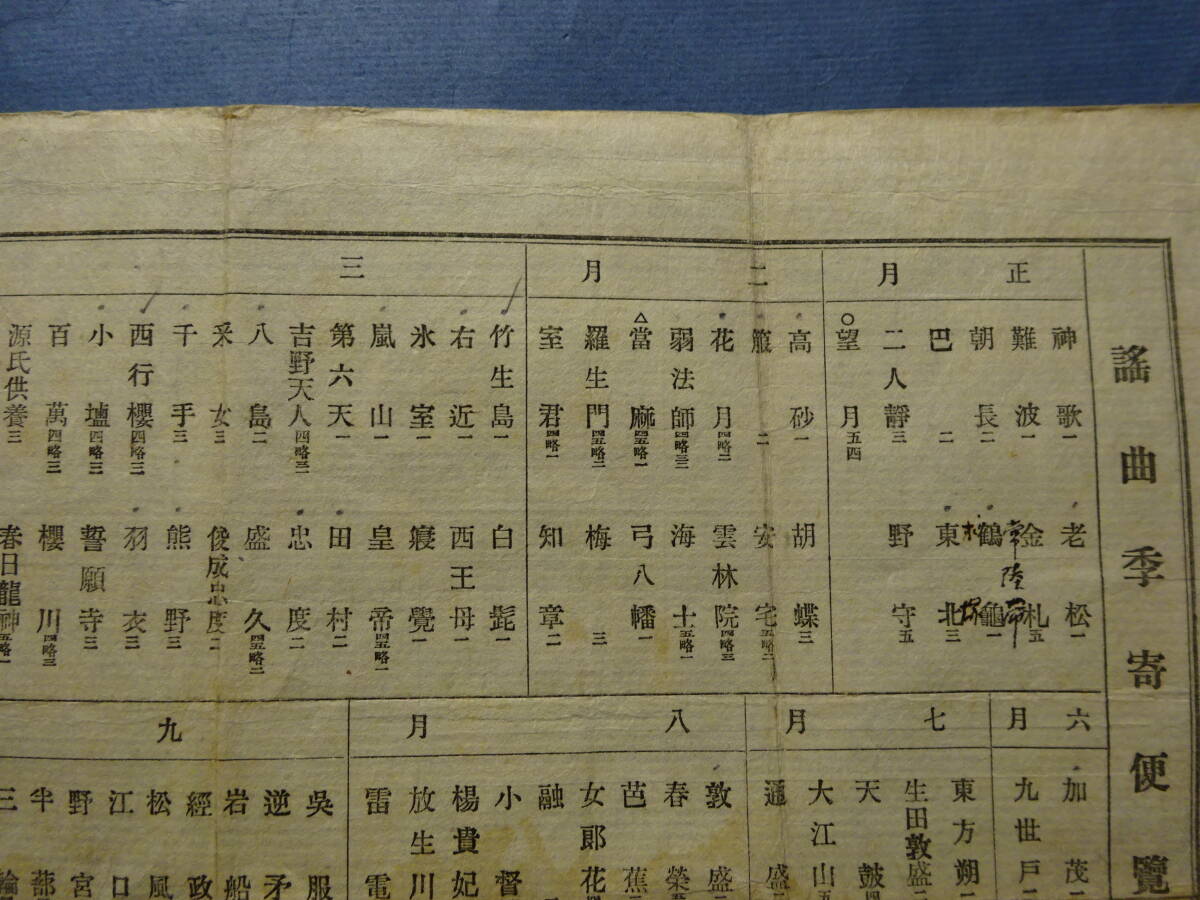 謠曲季寄便覽
正月
神歌一
難波一
朝長二
巴二
二人靜三
○望月五四
老松一
金札五
鶴龜一
東北三
野守五
常陸帶
二月
高砂一
箙二
花月四略二
弱法師四略三
△當麻四五略一
羅生門四五略二
室君四略一
胡蝶三
安宅五略二
雲林院四略三
海士五略一
弓八幡一
梅三
知章二
三
竹生島一
右近一
氷室一
嵐山一
第六天一
吉野天人四略三
八島二
釆女三
千手三
西行櫻四略三
小壚四略三
百萬四略三
源氏供養三
白髭一
西王母一
寢覺一
皇帝四五略一
田村二
忠度二
盛久四五略二
俊成忠度二
熊野三
羽衣三
誓願寺三
櫻川四略三
春日龍神五略一
六月
加茂一
九世戸
七月
東方朔
生田敦盛二
天鼓四
大江山五
通盛
八月
敦盛二
春榮
芭蕉三
女郎花
融
小督
楊貴妃
放生川
雷電
九
吳服
逆矛
岩船
經政
松風
江口
野宮
半蔀
三輪